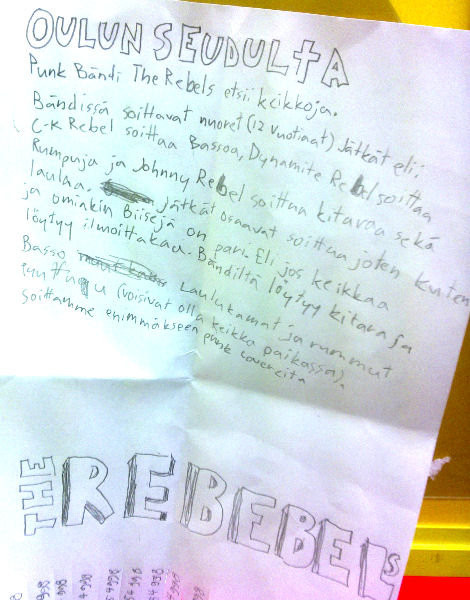 OULUN SEUDULTA
Punk Bändi The Rebels etsii keikkoja.
Bändissä soittavat nuoret (12 vuotiaat) Jätkät eli,
C-K Rebel soittaa Bassoa, Dynamite Rebel soittaa
Rumpuja ja Johnny Rebel soittaa kitaraa sekä
laulaa. Jätkät osaavat soittaa joten kuten
ja omiakin Biisejä on pari. Eli jos keikkaa
löytyy ilmoittakaa. Bändiltä löytyy kitara ja
Basso Laulukamat ja rummut
puuttuu (voisivat olla keikka paikassa).
Soittamme enimmäkseen punk covereita
THE REBEBELS